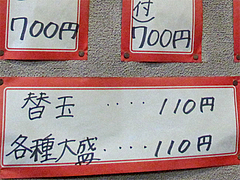 700円
付
700円
替玉‥‥110円
各種大盛‥‥110円